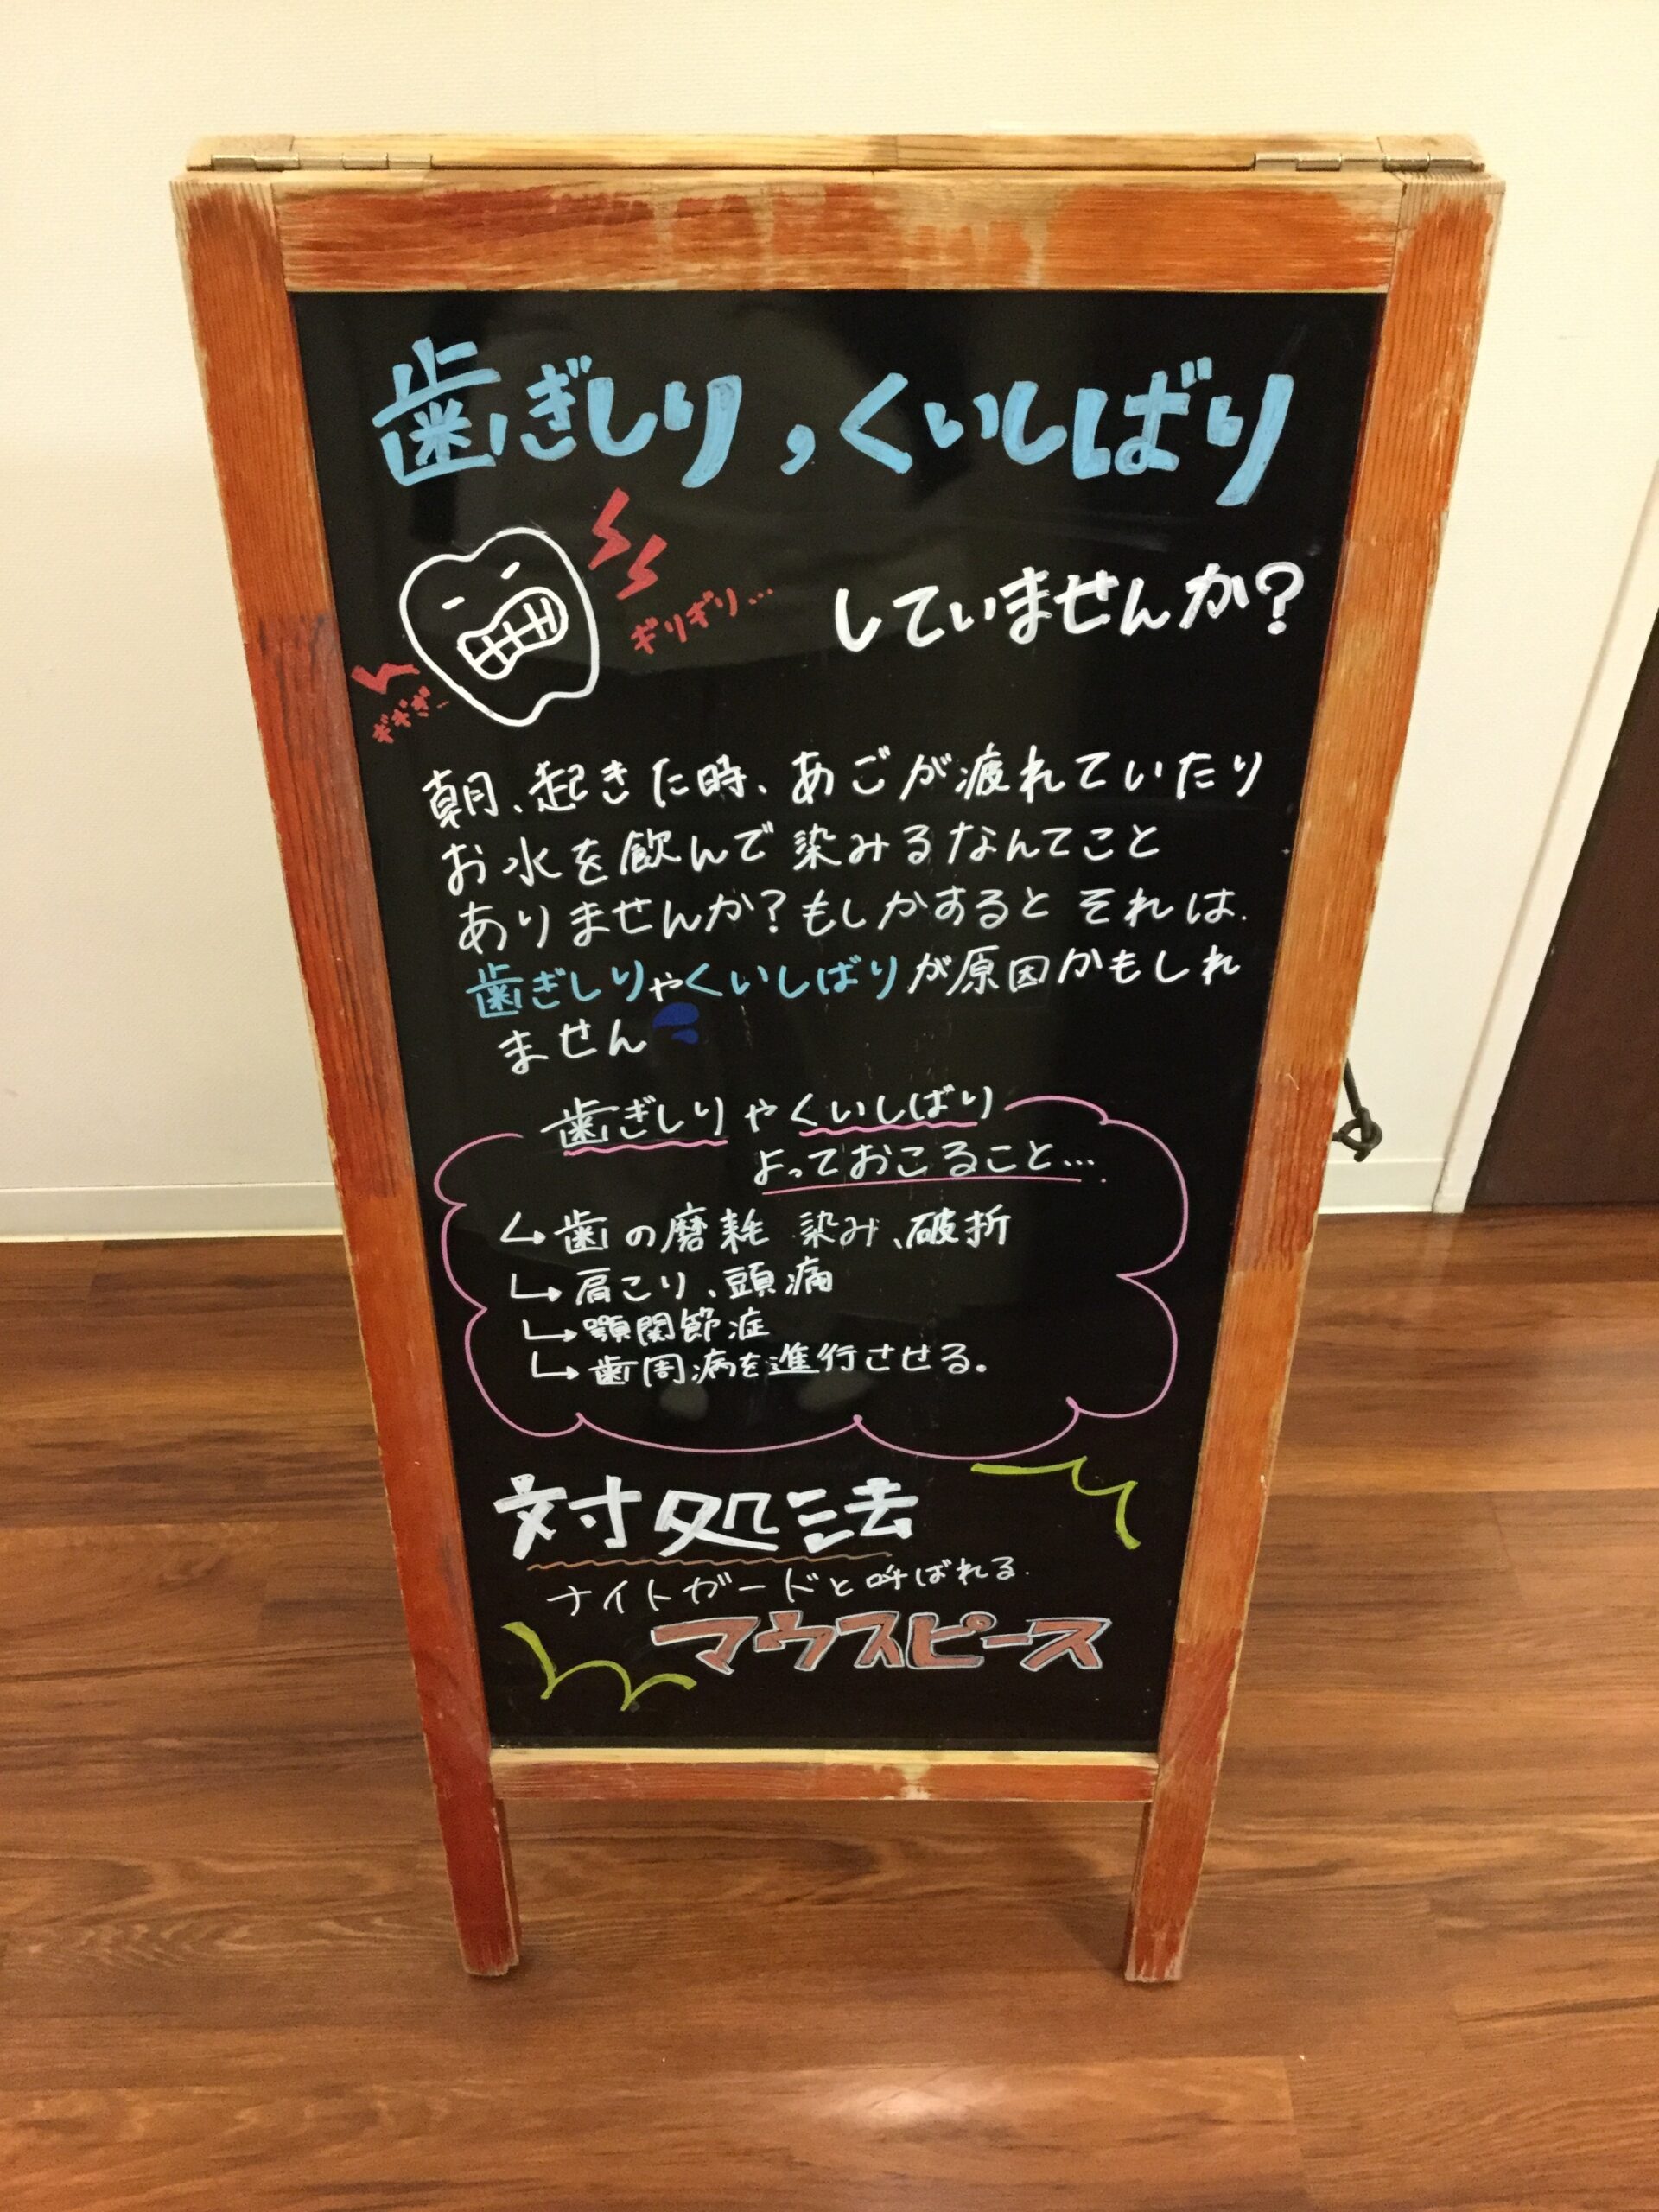 歯ぎしり,くいしばり
していませんか?
ギリギリ…
ギギギ…
朝、起きた時、あごが疲れていたり
お水を飲んで染みるなんてこと
ありませんか?もしかすると それは、
歯ぎしりやくいしばりが原因かもしれ
ません
歯ぎしりやくいしばり
よっておこること…
歯の磨耗 染み、破折
肩こり、頭痛
顎関節症
歯周病を進行させる。
対処法
ナイトガードと呼ばれる
マウスピース